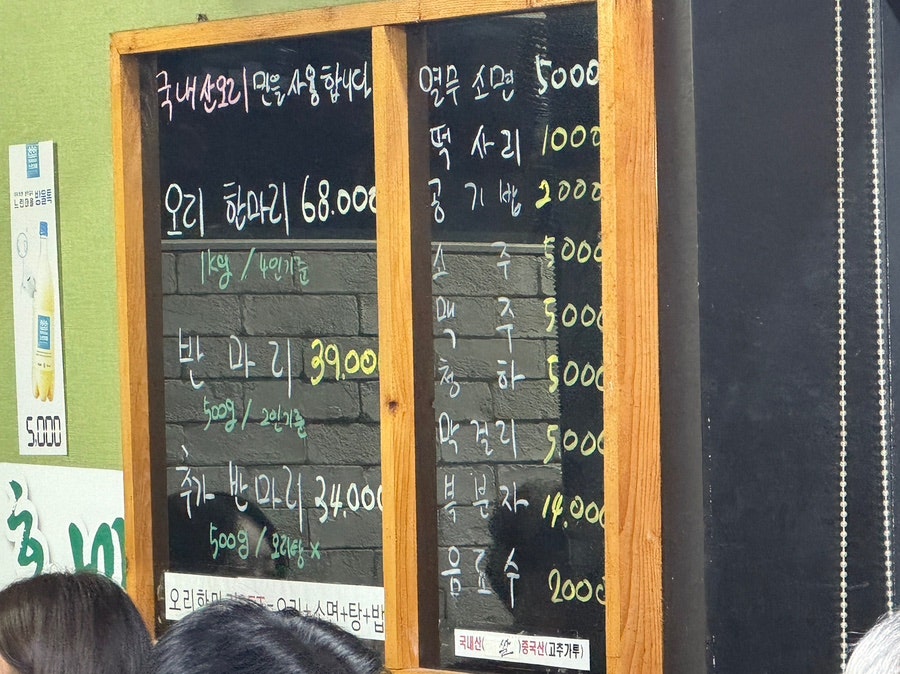 국내산오리 만을 사용합니다
오리 한마리 68.000
1kg / 4인기준
반 마 리 39.000
500g / 2인기준
추가 반마리 34.000
500g / 오리탕 x
오리한마리 오리+소면+탕+밥
열무 소면 5000
떡 사 리 1000
공 기 밥 2000
소 주 5000
맥 주 5000
청 하 5000
막 걸 리 5,000
복 분 자 14,000
음 료 수 2000
국내산( 쌀 )중국산(고추가루)
느린마을 방울톡
5,000